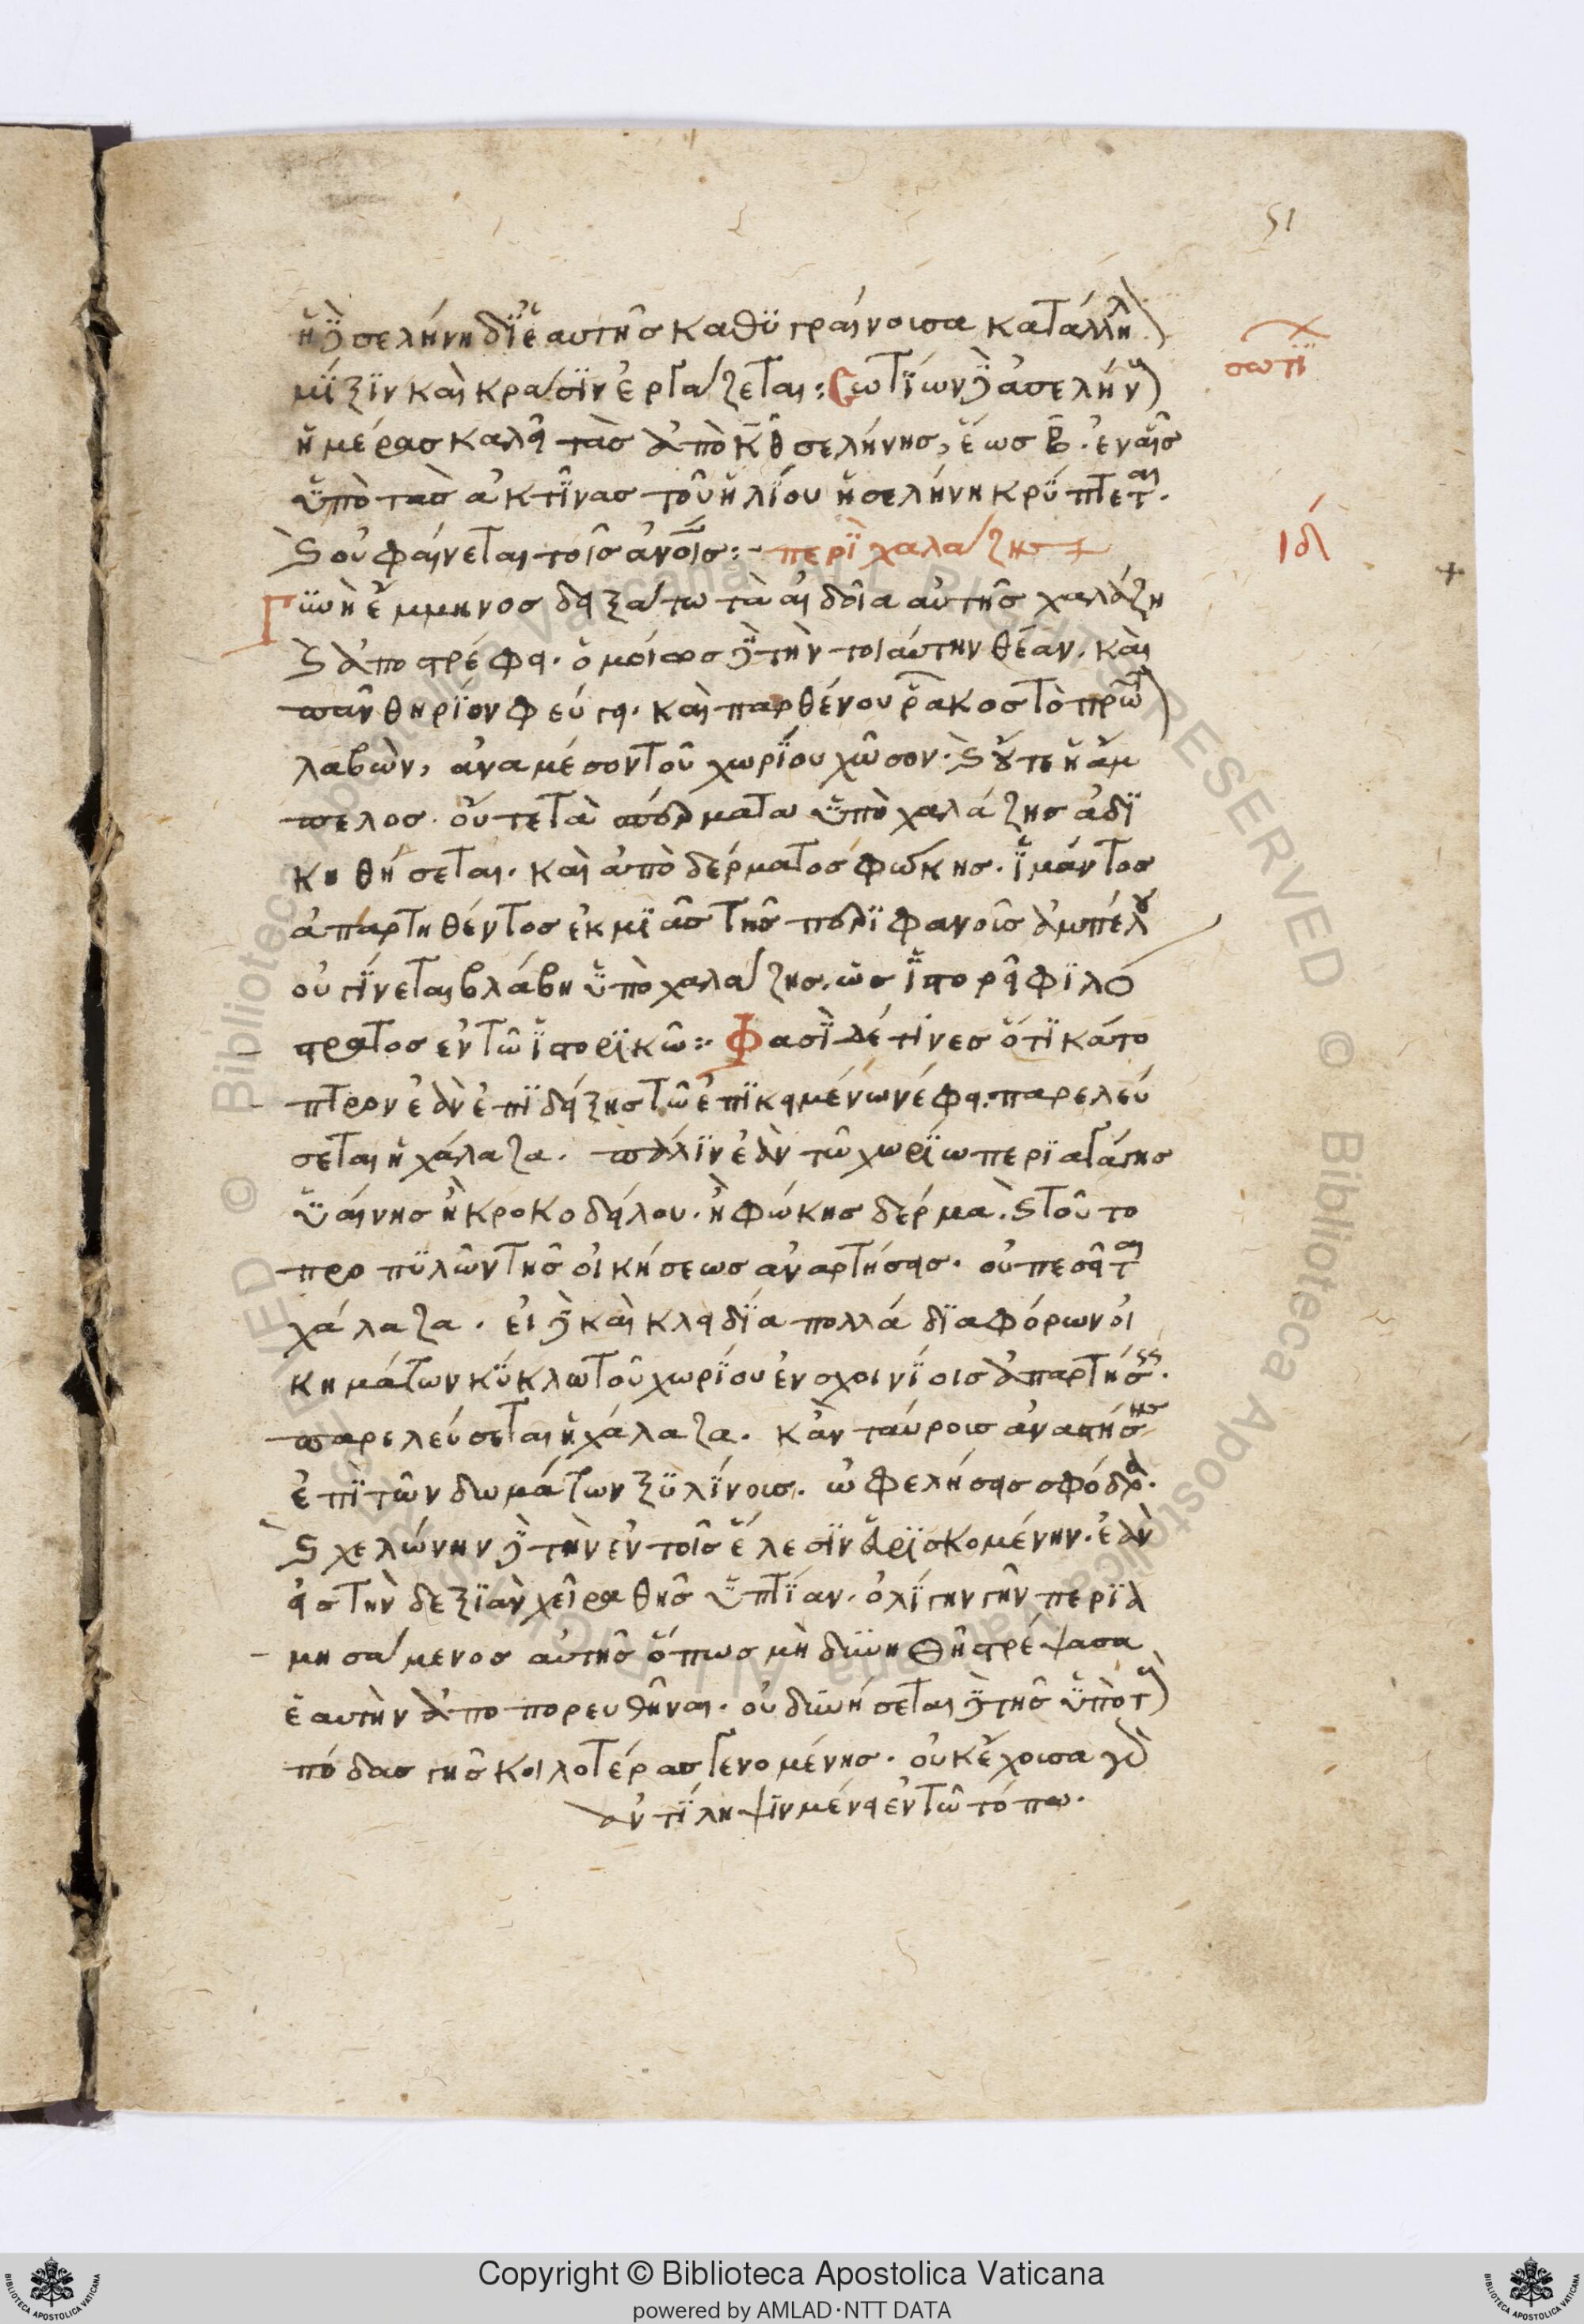 51
ἡ δὲ σελήνη δι' ἑαυτῆς καθυγραίνουσα κατάλλη
σωτί
μίξιν καὶ κράσιν ἐργάζεται: Σωτίων δὲ ἀσελήν
ἡμέρας καλεῖ τὰς ἀπὸ κθ σελήνης, ἕως β. ἐν αἷς
ὑπὸ τὰς ἀκτῖνας τοῦ ἡλίου ἡ σελήνη κρύπτεται.
καὶ οὐ φαίνεται τοῖς ἀνοις:- περὶ χαλάζης
ιδ
Γυνὴ ἔμμηνος δειξάτω τὰ αἰδοῖα αὐτῆς χαλάζη
καὶ ἀποστρέφει. ὁμοίως δὲ τὴν τοιαύτην θέαν. καὶ
πᾶν θηρίον φεύγει. καὶ παρθένου ῥάκος τὸ πρῶτ
λαβὼν, ἀναμέσον τοῦ χωρίου χῶσον. καὶ οὔτε ἡ ἄμ
πελος. οὔτε τὰ σπέρματα ὑπὸ χαλάζης ἀδι
κηθήσεται. καὶ ἀπὸ δέρματος φώκης. ἱμάντος
ἀπαρτηθέντος ἐκ μιᾶς τῆς περιφανοῖς ἀμπέλου
οὐ γίνεται βλάβη ὑπὸ χαλάζης, ὡς ἱστορεῖ φιλό
στρατος ἐν τῶ ἱστορικῶ: Φασὶ δέ τινες ὅτι κάτο
πτρον ἐὰν ἐπιδείξης τῶ ἐπικειμένω νέφει. παρελεύ
σεται ἡ χάλαζα. πάλιν ἐὰν τῶ χωρίω περιαγάγης
ὑαίνης ἢ κροκοδείλου. ἢ φώκης δέρμα. καὶ τοῦτο
προ πυλῶν τῆς οἰκήσεως ἀναρτήσεις. οὐ πεσεῖται
χάλαζα. εἰ δὲ καὶ κλειδία πολλά διαφόρων οἰ
κημάτων κύκλω τοῦ χωρίου ἐν σχοινίοις ἀπαρτήσεις.
παρελεύσεται ἡ χάλαζα. κἂν ταύροις ἀναστήσης
ἐπὶ τῶν δωμάτων ξυλίνοις. ὠφελήσεις σφόδρα.
καὶ χελώνην δὲ τὴν ἐν τοῖς ἕλεσιν εὑρισκομένην. ἐὰν
εἰς τὴν δεξιὰν χεῖρα θῆς ὑπτίαν. ὀλίγην γῆν περια
μησάμενος αὐτῆς ὅπως μὴ δυνηθῆ στρέψασα
ἑαυτὴν ἀποπορευθῆναι. οὐ δυνήσεται δὲ τῆς ὑπὸ τ
πόδας γῆς κοιλοτέρας γενομένης. οὐκ ἔχουσα γὰρ
ἀντίληψιν μένει ἐν τῶ τόπω.
Copyright © Biblioteca Apostolica Vaticana
powered by AMLAD·NTT DATA